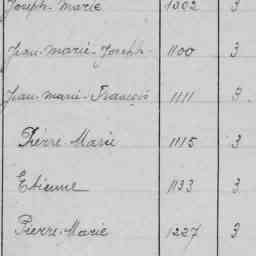 Joseph-Marie 1002 3
Jean-marie-Joseph- 1100 3
Jean-marie-François 1111 3.
Pierre-Marie 1115 3
Etienne 1133 3
Pierre-Marie 1227 3